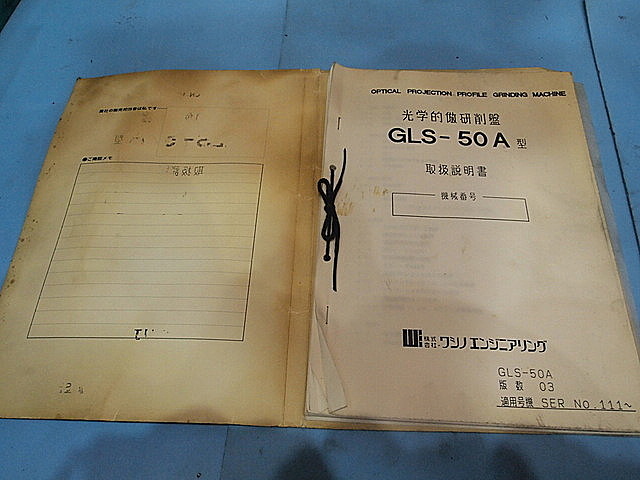 弊社の販売担当者は私です
●ご商談メモ
OPTICAL PROJECTION PROFILE GRINDING MACHINE
光学的倣研削盤
GLS-50A型
取扱説明書
機械番号
株式会社 ワシノエンジニアリング
GLS-50A
版数 03
適用号機 SER NO.111~